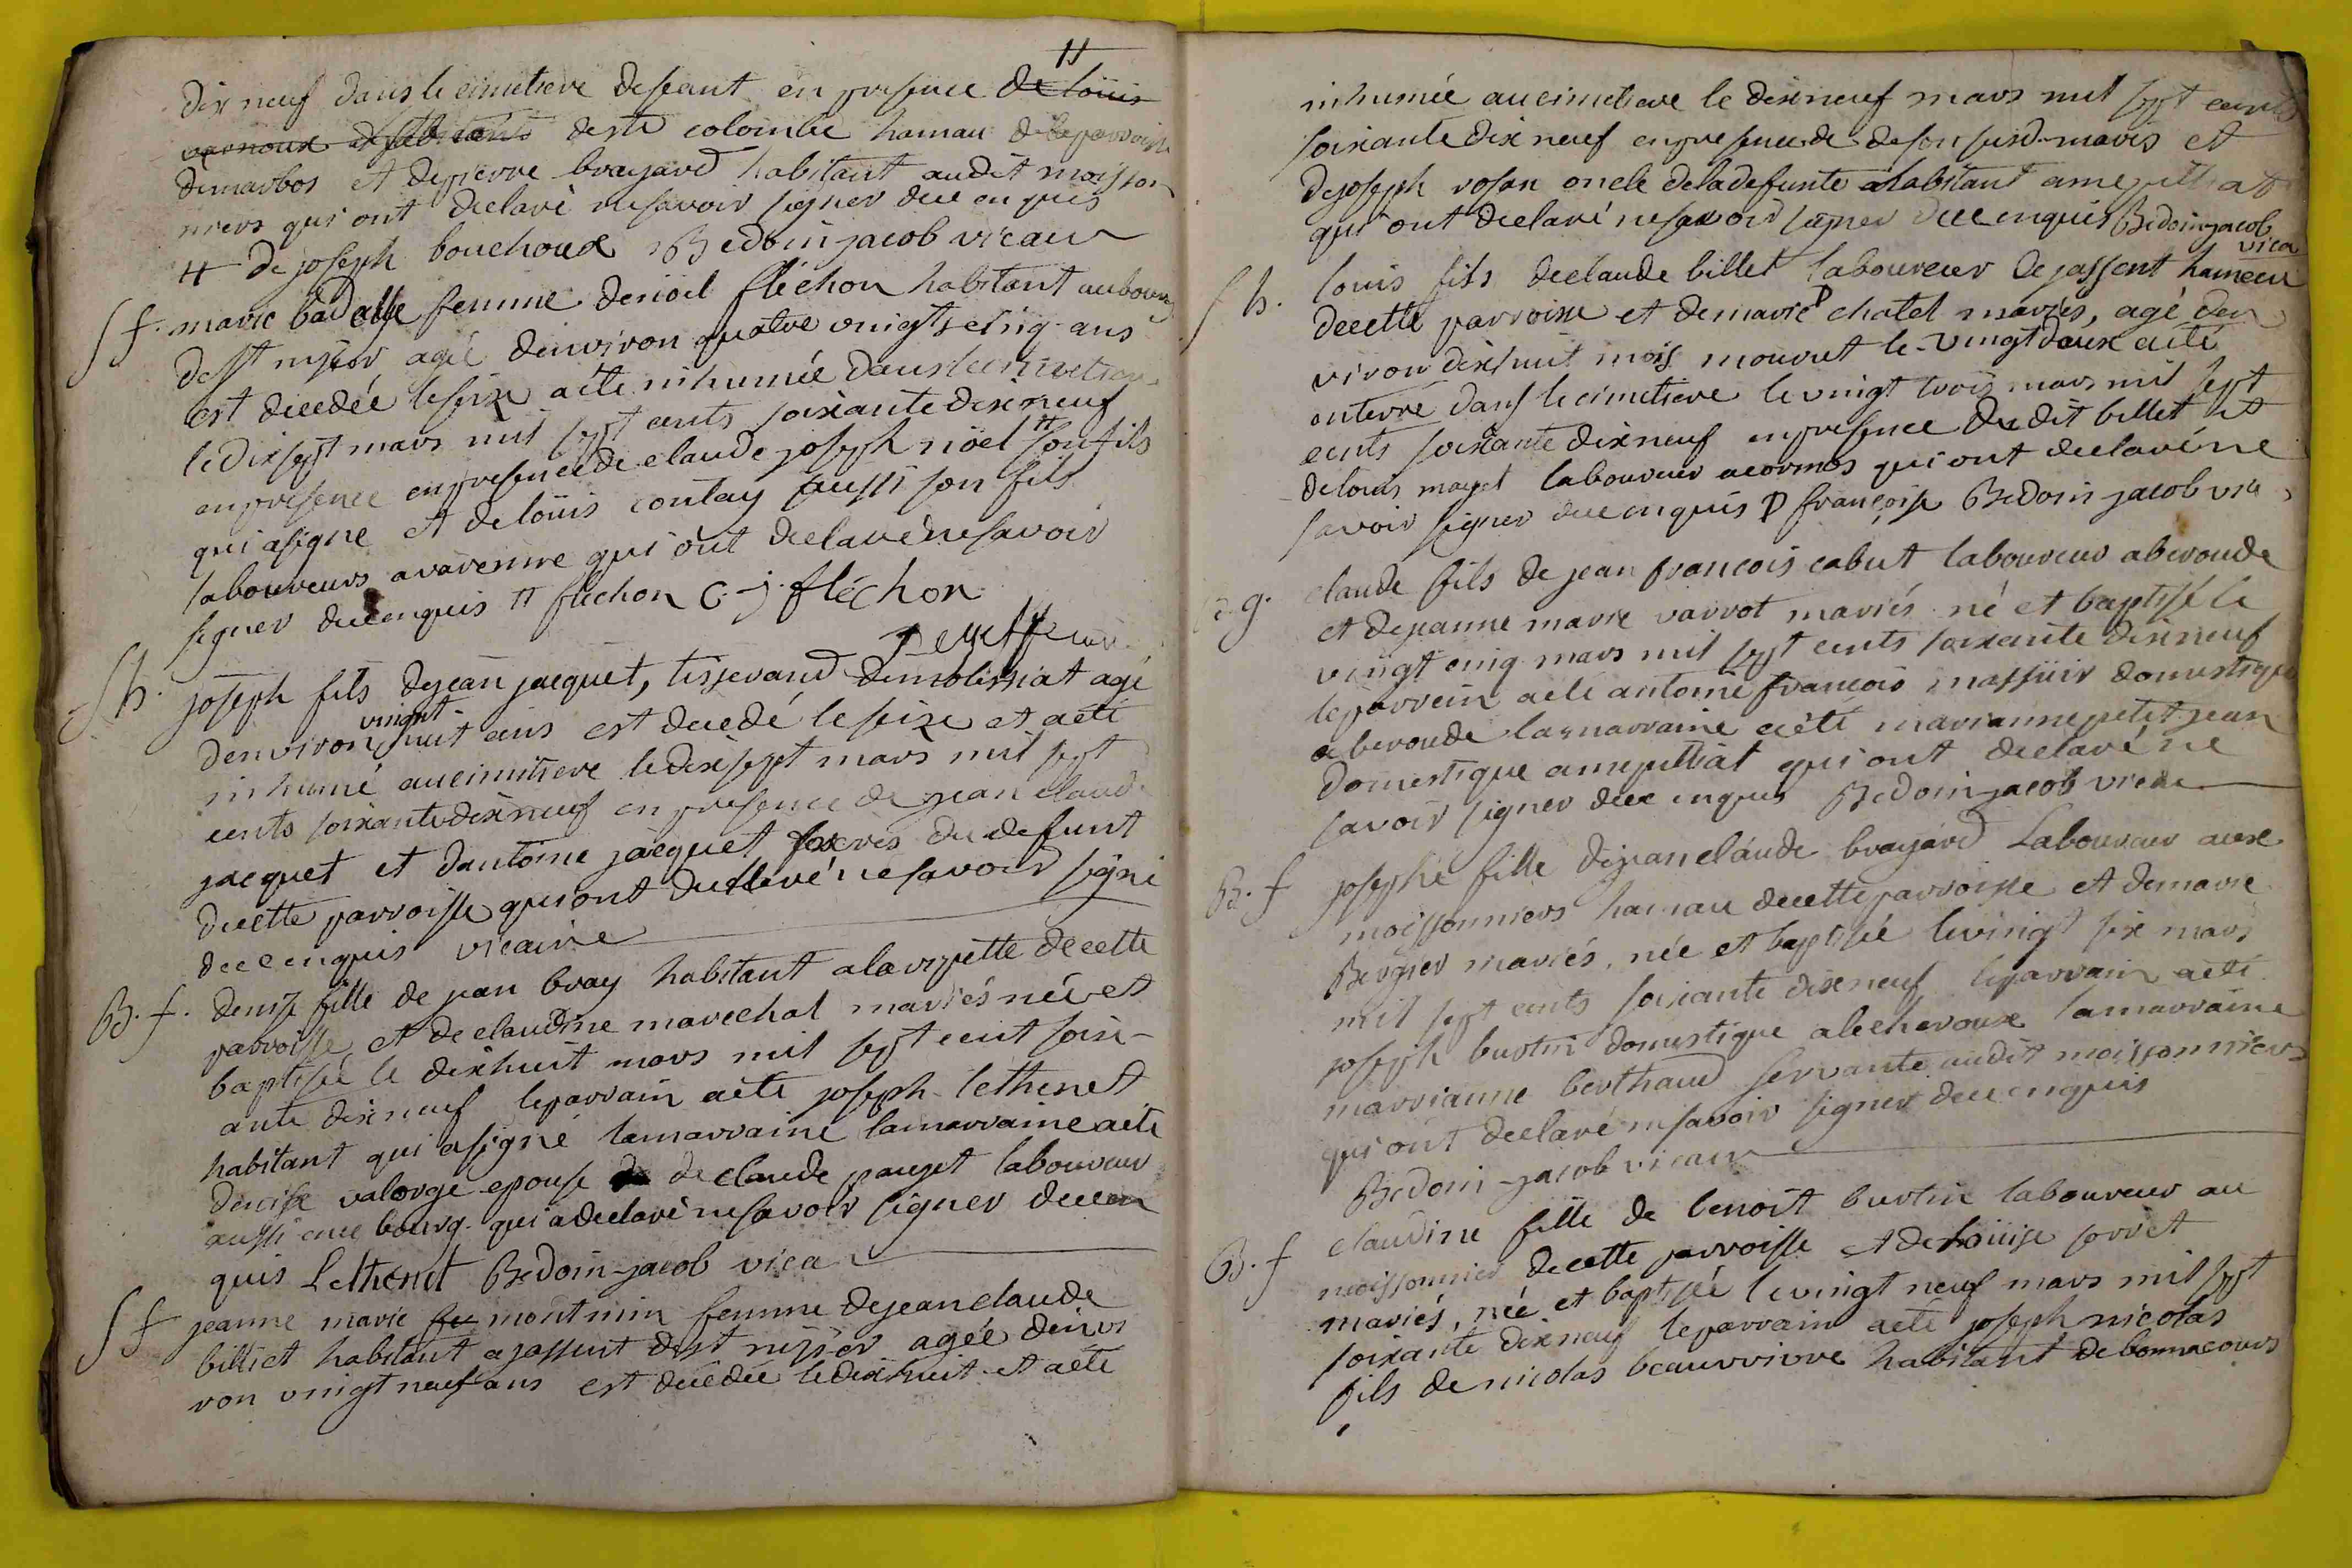 dix neuf dans le cimetiere de ceant en presence # de loüis
vernoux et habitants de ste colombe hamau de la parroisse
de marbos et de pierre brayard habitant audit moisson
niers qui ont declaré ne savoir signer de ce enquis
# de joseph bouchoux Bedoin-jacob vicaire
S f. marie badasse femme de nöel fléchon habitant au bourg
de st nisier agée d'environ quatre vingt cinq ans
est decedée le seize a été inhumée dans le cimetiere
le dix sept mars mil sept cents soixante dix neuf
en presence en presence de claude joseph nöel # son fils
qui a signe et de loüis contay aussi son fils
laboureurs a varenne qui ont declaré ne savoir
signer de ce enquis # flechon C. j. fléchon
S h. joseph fils de jean jacquet, tisserand de molissiat agé
d'environ vingt huit ans est decedé le seize et a eté
inhumé au cimetiere le dix sept mars mil sept
cents soixante dix neuf en presence de jean claude
jacquet et d'antoine jacquet freres du defunt
de cette parroisse qui ont declaré ne savoir signé
de ce enquis vicaire
B. f. denise fille de jean bray habitant a la vepette de cette
parroisse et de claudine marechal mariés née et
baptisée le dix huit mars mil sept cent soix-
ante dix neuf le parrain a eté joseph lethenet
habitant qui a signé la marraine la marraine a eté
denise valorge epouse de claude pauget laboureur
aussi au bourg. qui a declaré ne savoir signer de ce en
quis Lethenet Bedoin-jacob vica
S f jeanne marie fe montmin femme de jean claude
billiet habitant a jassent de st nisier agée d'envi
ron vingt neuf ans est decedée le dix huit et a été
inhumée au cimetiere le dix neuf mars mil sept cents
soixante dix neuf en presence de de son susd. maris et
de joseph rosan oncle de la defunte habitant a mepilliat
qui ont declaré ne savoir signer de ce enquis Bedoin-jacob
vica
S h. louis fils de claude billet laboureur de jassent hameau
de cette parroisse et de marie P chatel mariés, agé d'en
viron dix huit mois mourut le vingt deux a eté
enterré dans le cimetiere le vingt trois mars mil sept
cents soixante dix neuf en presence du dit billet et
de louis mayet laboureur a cormos qui ont declaré ne
savoir signer de ce enquis P françoise Bedoin-jacob vic
B. g. claude fils de jean francois cabut laboureur a beroude
et de jeanne marie varrot mariés né et baptisé le
vingt cinq mars mil sept cents soixante dix neuf
le parrein a eté antoine françois massuir domestique
a beroude la marraine a eté marianne petit-jean
domestique a mepilliat qui ont declaré ne
savoir signer de ce enquis Bedoin-jacob vicaire
B. f josephe fille de jean claude brayard Laboureur aux
moissonniers hamau de cette parroisse et de marie
Bergier mariés, née et baptisée le vingt six mars
mil sept cents soixante dix neuf le parrain a eté
joseph burtin domestique a lecheroux la marraine
marrianne berthaud servante audit moissonniers
qui ont declaré ne savoir signer de ce enquis
Bedoin-jacob vicaire
B. f claudine fille de benoit burtin laboureur au
moissonnier de cette parroisse et de loüise sorret
mariés, née et baptisée le vingt neuf mars mil sept
soixante dix neuf le parrain a eté joseph nicolas
fils de nicolas beauvvivre habitant de bonnacours